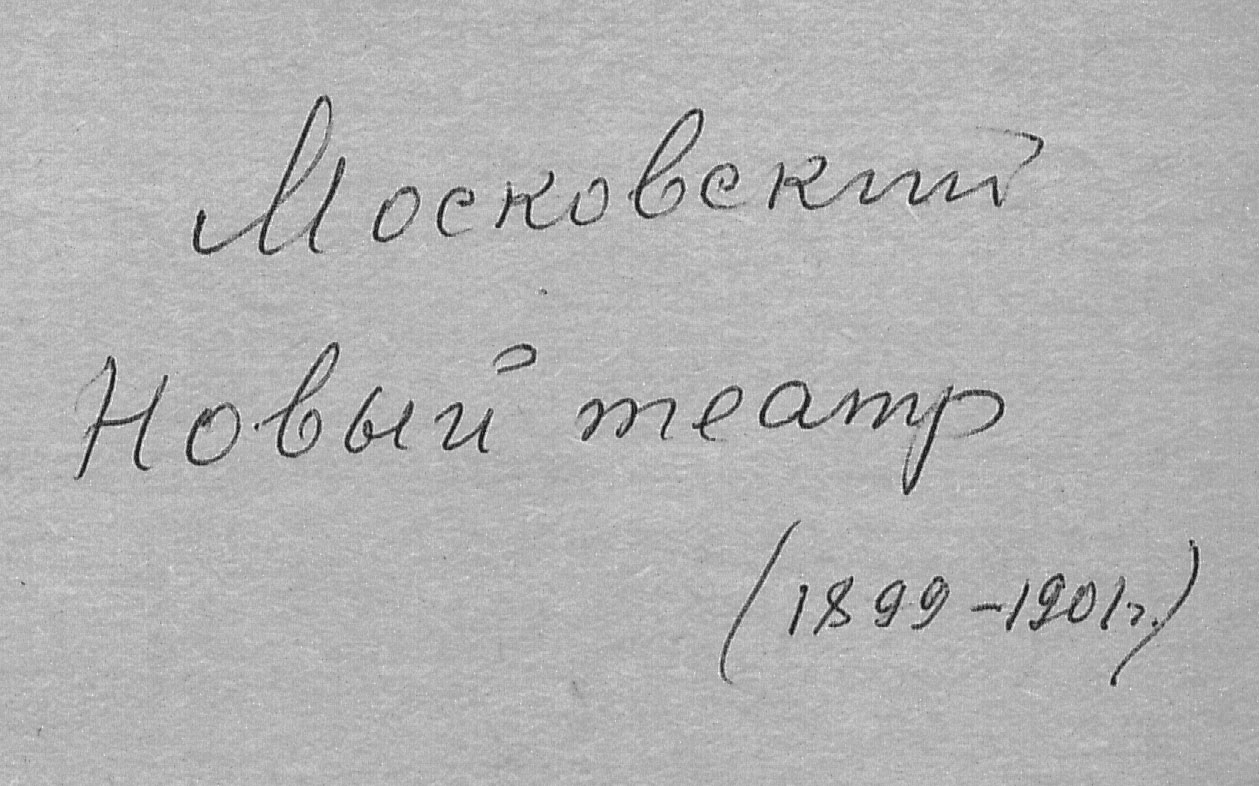 Московский
Новый театр
(1899-1901г.)